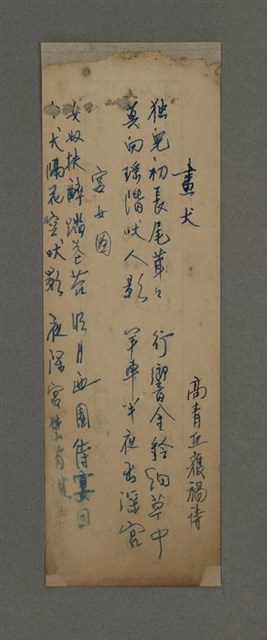 畫犬
高青丘獲禍詩
独兒初長尾茸々 行響金鈴細草中
莫向瑶階吠人影 羊車半夜出深宮
宮女図
女奴扶醉踏蒼苔 明月西園侍宴回
小犬隔花空吠影 夜深宮禁有誰來